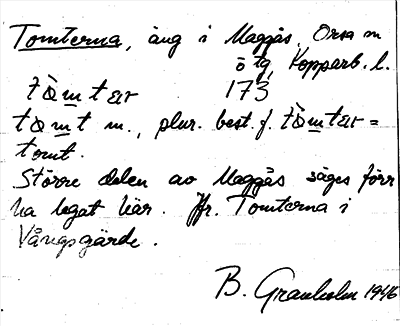 Tomterna, äng i Maggås, Orsa sn
ö tg, Kopparb. l.
tòmtər 173
tòmt m., plur. best. f. tòmtər =
tomt.
Större delen av Maggås säges förr
ha legat här. Jfr. Tomterna i
Vångsgärde.
B. Granholm 1946